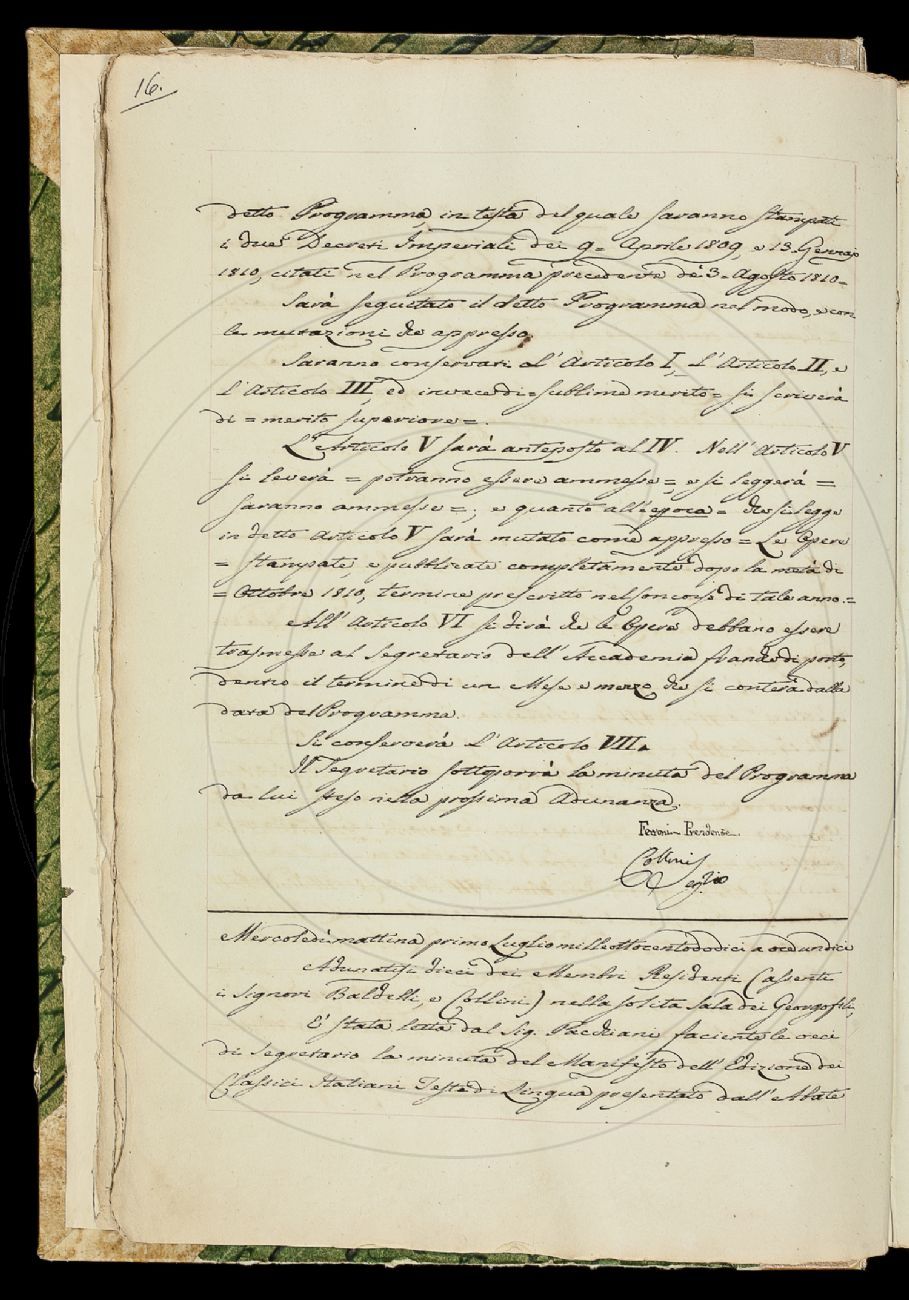 16.
detto Programma, in testa del quale saranno stampati
i due Decreti Imperiali dei 9= Aprile 1809, e 13. Gennajo
1810, citati nel Programma precedente de' 3. Agosto 1810=
Sarà seguitato il detto Programma nel modo, e con
le mutazioni che appresso.
Saranno conservati L'Articolo I, L'Articolo II, e
L'Articolo III, ed invece di = sublime merito = si scriverà
di = merito superiore =.
L'Articolo V sarà anteposto al IV. Nell'Articolo V
si leverà = potranno essere ammesse =, e si leggerà =
saranno ammesse =; e quanto all'epoca = che si legge
in detto Articolo V sarà mutato come appresso = Le Opere
= stampate, e pubblicate completamente dopo la metà di
= Ottobre 1810, termine prescritto nel concorso di tale anno.=
All'Articolo VI si dirà che le Opere debbano essere
trasmesse al Segretario dell'Accademia franche di porto,
dentro il termine di un Mese e mezzo che si conterà dalla
data del Programma.
Si conserverà L'Articolo VII.
Il Segretario sottoporrà la minuta del Programma
da lui steso nella prossima Adunanza.
Ferroni Presidente
Collini
Seg.rio
Mercoledì mattina primo Luglio mille ottocento dodici a ore undici
Adunatisi dieci dei Membri Residenti (assenti
i Signori Baldelli, e Collini) nella solita Sala dei Georgofili,
E' stata letta dal Sig. Pacchiani faciente le veci
di Segretario la minuta del Manifesto dell'Edizione dei
Classici Italiani Testo di Lingua presentato dall'Abate